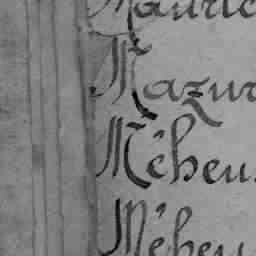 Mauric
Mazur
Méheu
Méheu